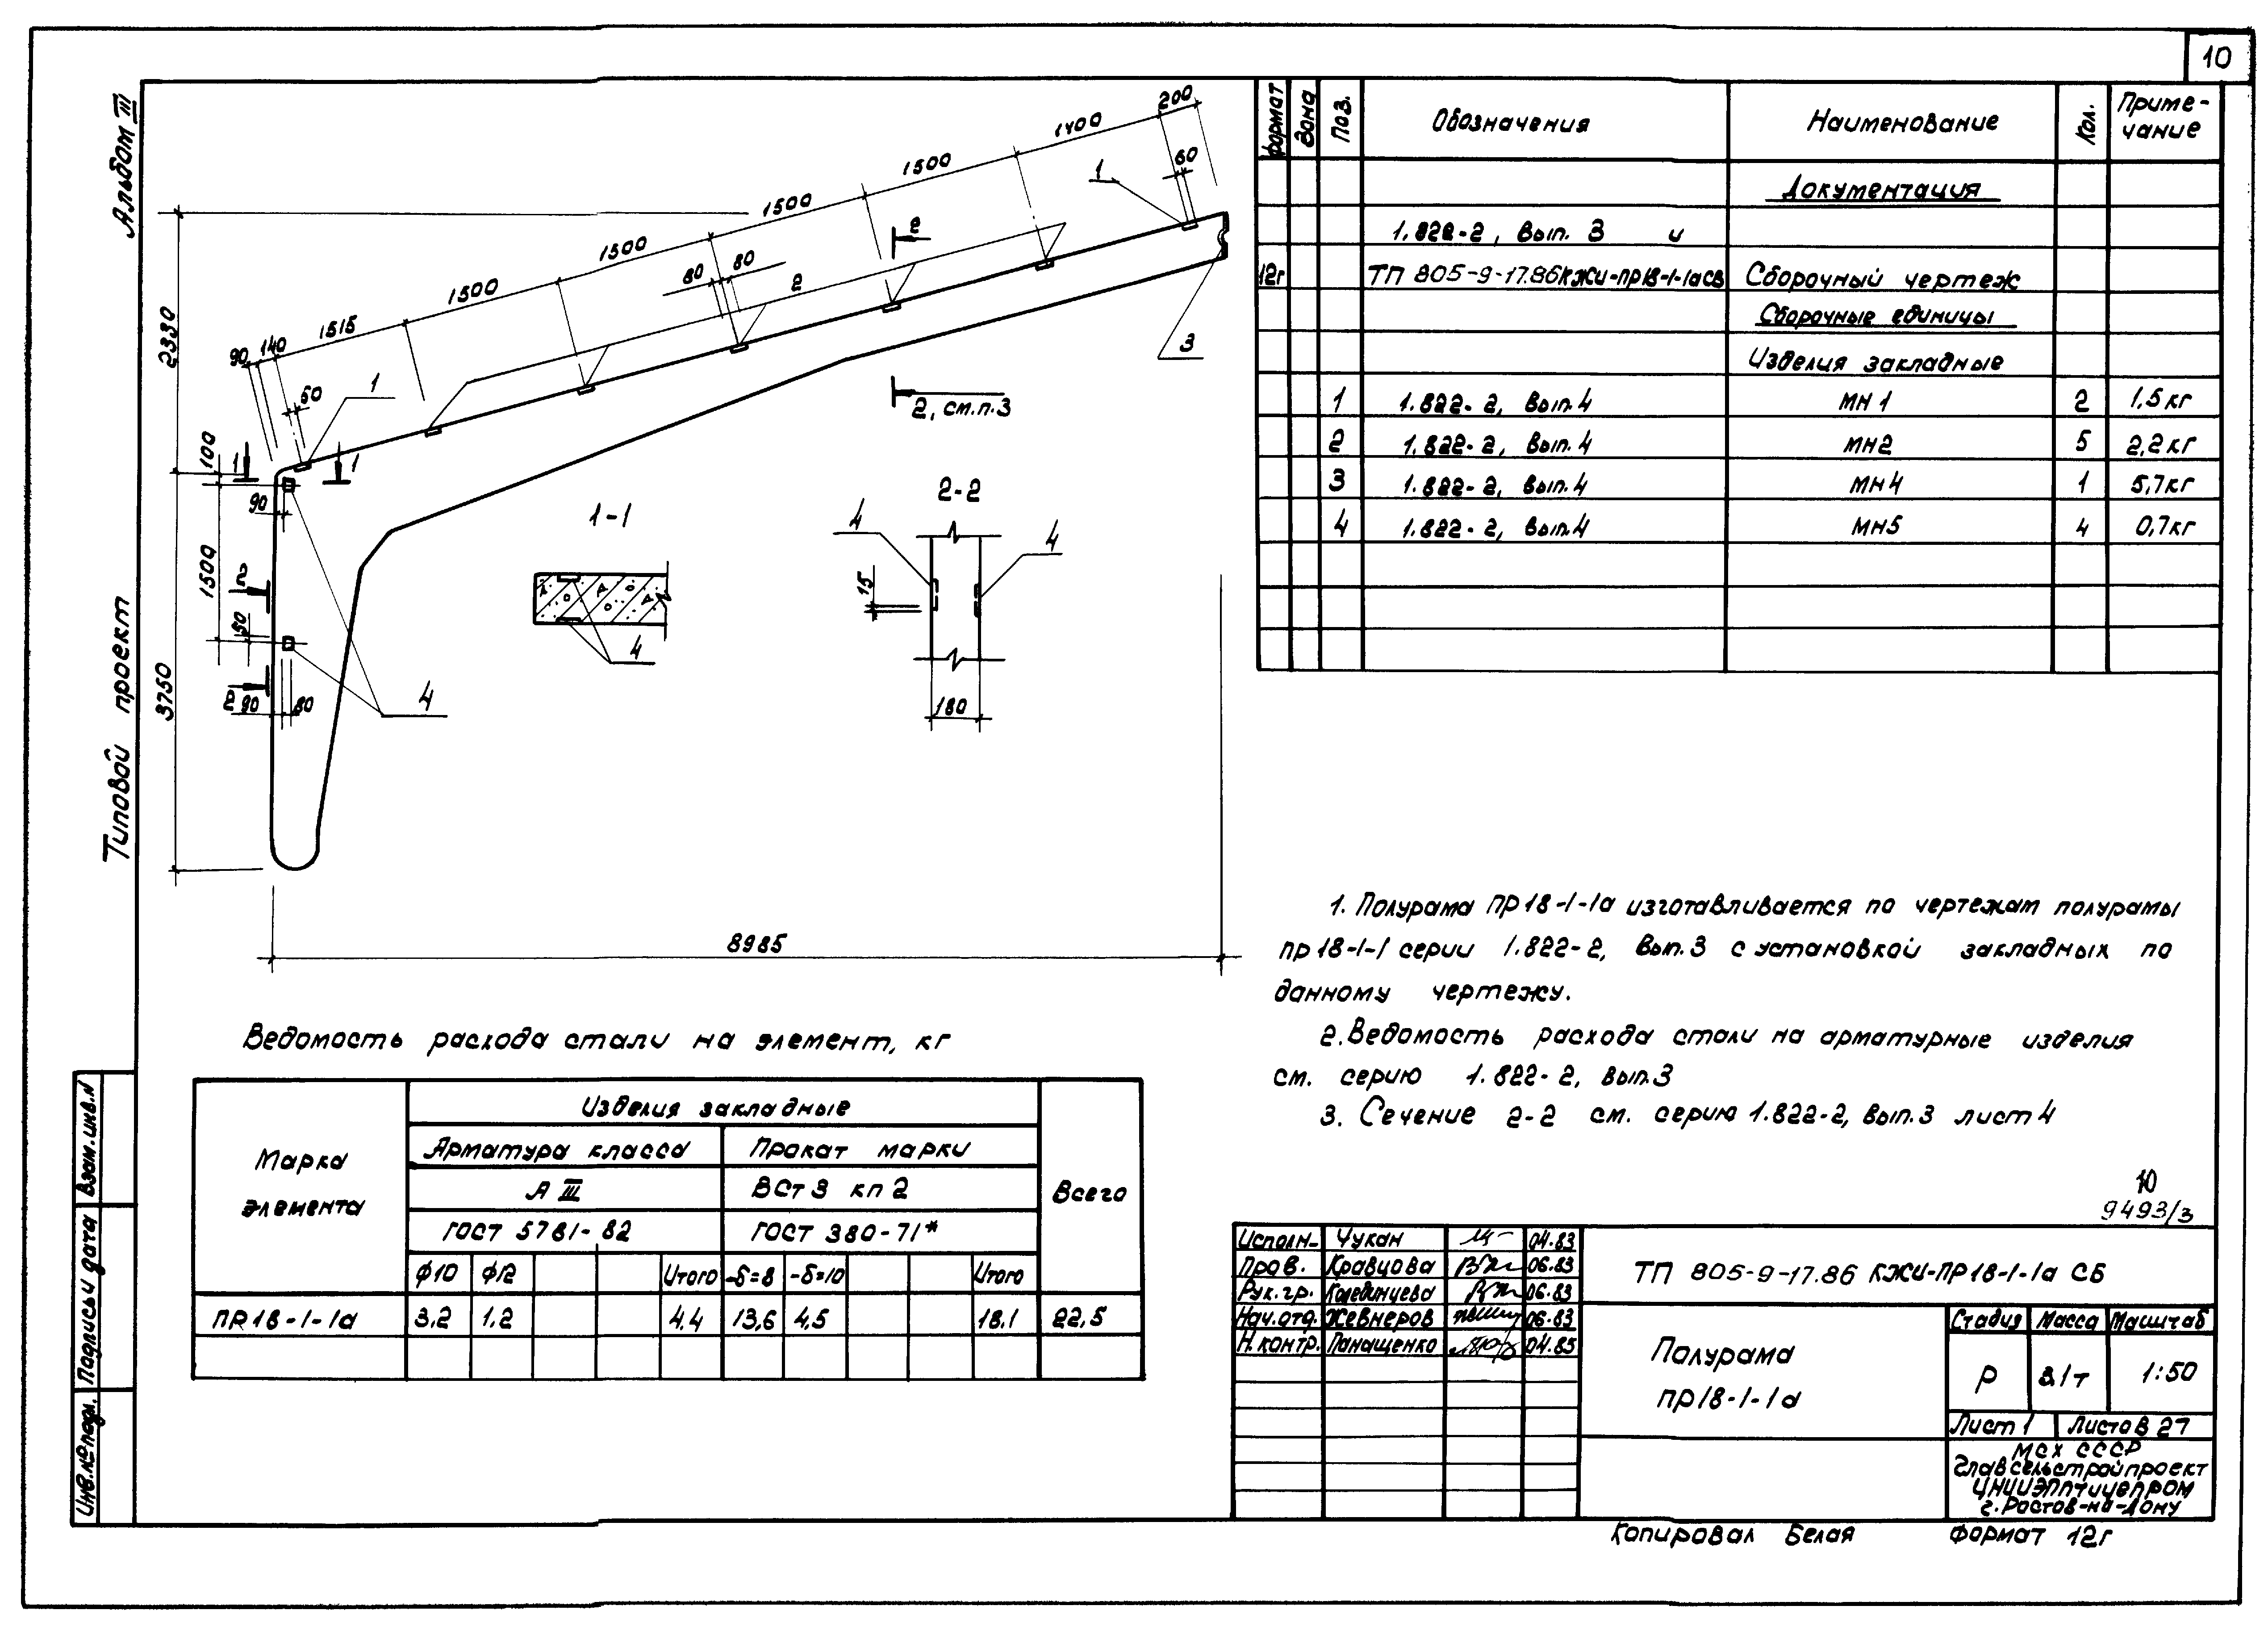 10
Альбом III
Типовой проект
Взам. инв. N
Подпись и дата
Инв. № подл.
200
1400
1500
1500
1500
1500
1515
140
90
60
60
80
80
1
1
2
2
2, см. п. 3
3
2330
100
1 1
90
1500
50
2
2
90
80
4
3750
8985
1-1
4
2-2
4
4
15
180
формат Зона Поз. Обозначения Наименование Кол. Приме-
чание
Документация
1.822-2, Вып. 3 и
12г ТП 805-9-17.86КЖИ-ПР18-1-1аСБ Сборочный чертеж
Сборочные единицы
Изделия закладные
1 1.822-2, Вып. 4 МН1 2 1,5кг
2 1.822-2, Вып. 4 МН2 5 2,2кг
3 1.822-2, Вып. 4 МН4 1 5,7кг
4 1.822-2, Вып. 4 МН5 4 0,7кг
1. Полурама ПР18-1-1а изготавливается по чертежам полурамы
ПР18-1-1 серии 1.822-2, Вып. 3 с установкой закладных по
данному чертежу.
2. Ведомость расхода стали на арматурные изделия
см. серию 1.822-2, вып. 3
3. Сечение 2-2 см. серию 1.822-2, вып. 3 лист 4
Ведомость расхода стали на элемент, кг
Марка
элемента
Изделия закладные
Всего
Арматура класса Прокат марки
А III ВСт 3 кп 2
ГОСТ 5781-82 ГОСТ 380-71*
Ф10 Ф12 Итого -δ=8 -δ=10 Итого
ПР18-1-1а 3,2 1,2 4,4 13,6 4,5 18,1 22,5
10
9493/3
Исполн. Чукан 04.83
Пров. Кравцова 06.83
Рук. гр. 06.83
Нач. отд. Жевнеров 06.83
Н. контр. Панащенко 04.85
ТП 805-9-17.86 КЖИ-ПР18-1-1а СБ
Полурама
ПР18-1-1а
Стадия Масса Масштаб
Р 3.1т 1:50
Лист 1 Листов 27
МСХ СССР
Главсельстройпроект
ЦНИИЭПптицепром
г. Ростов-на-Дону
Копировал Белая Формат 12г